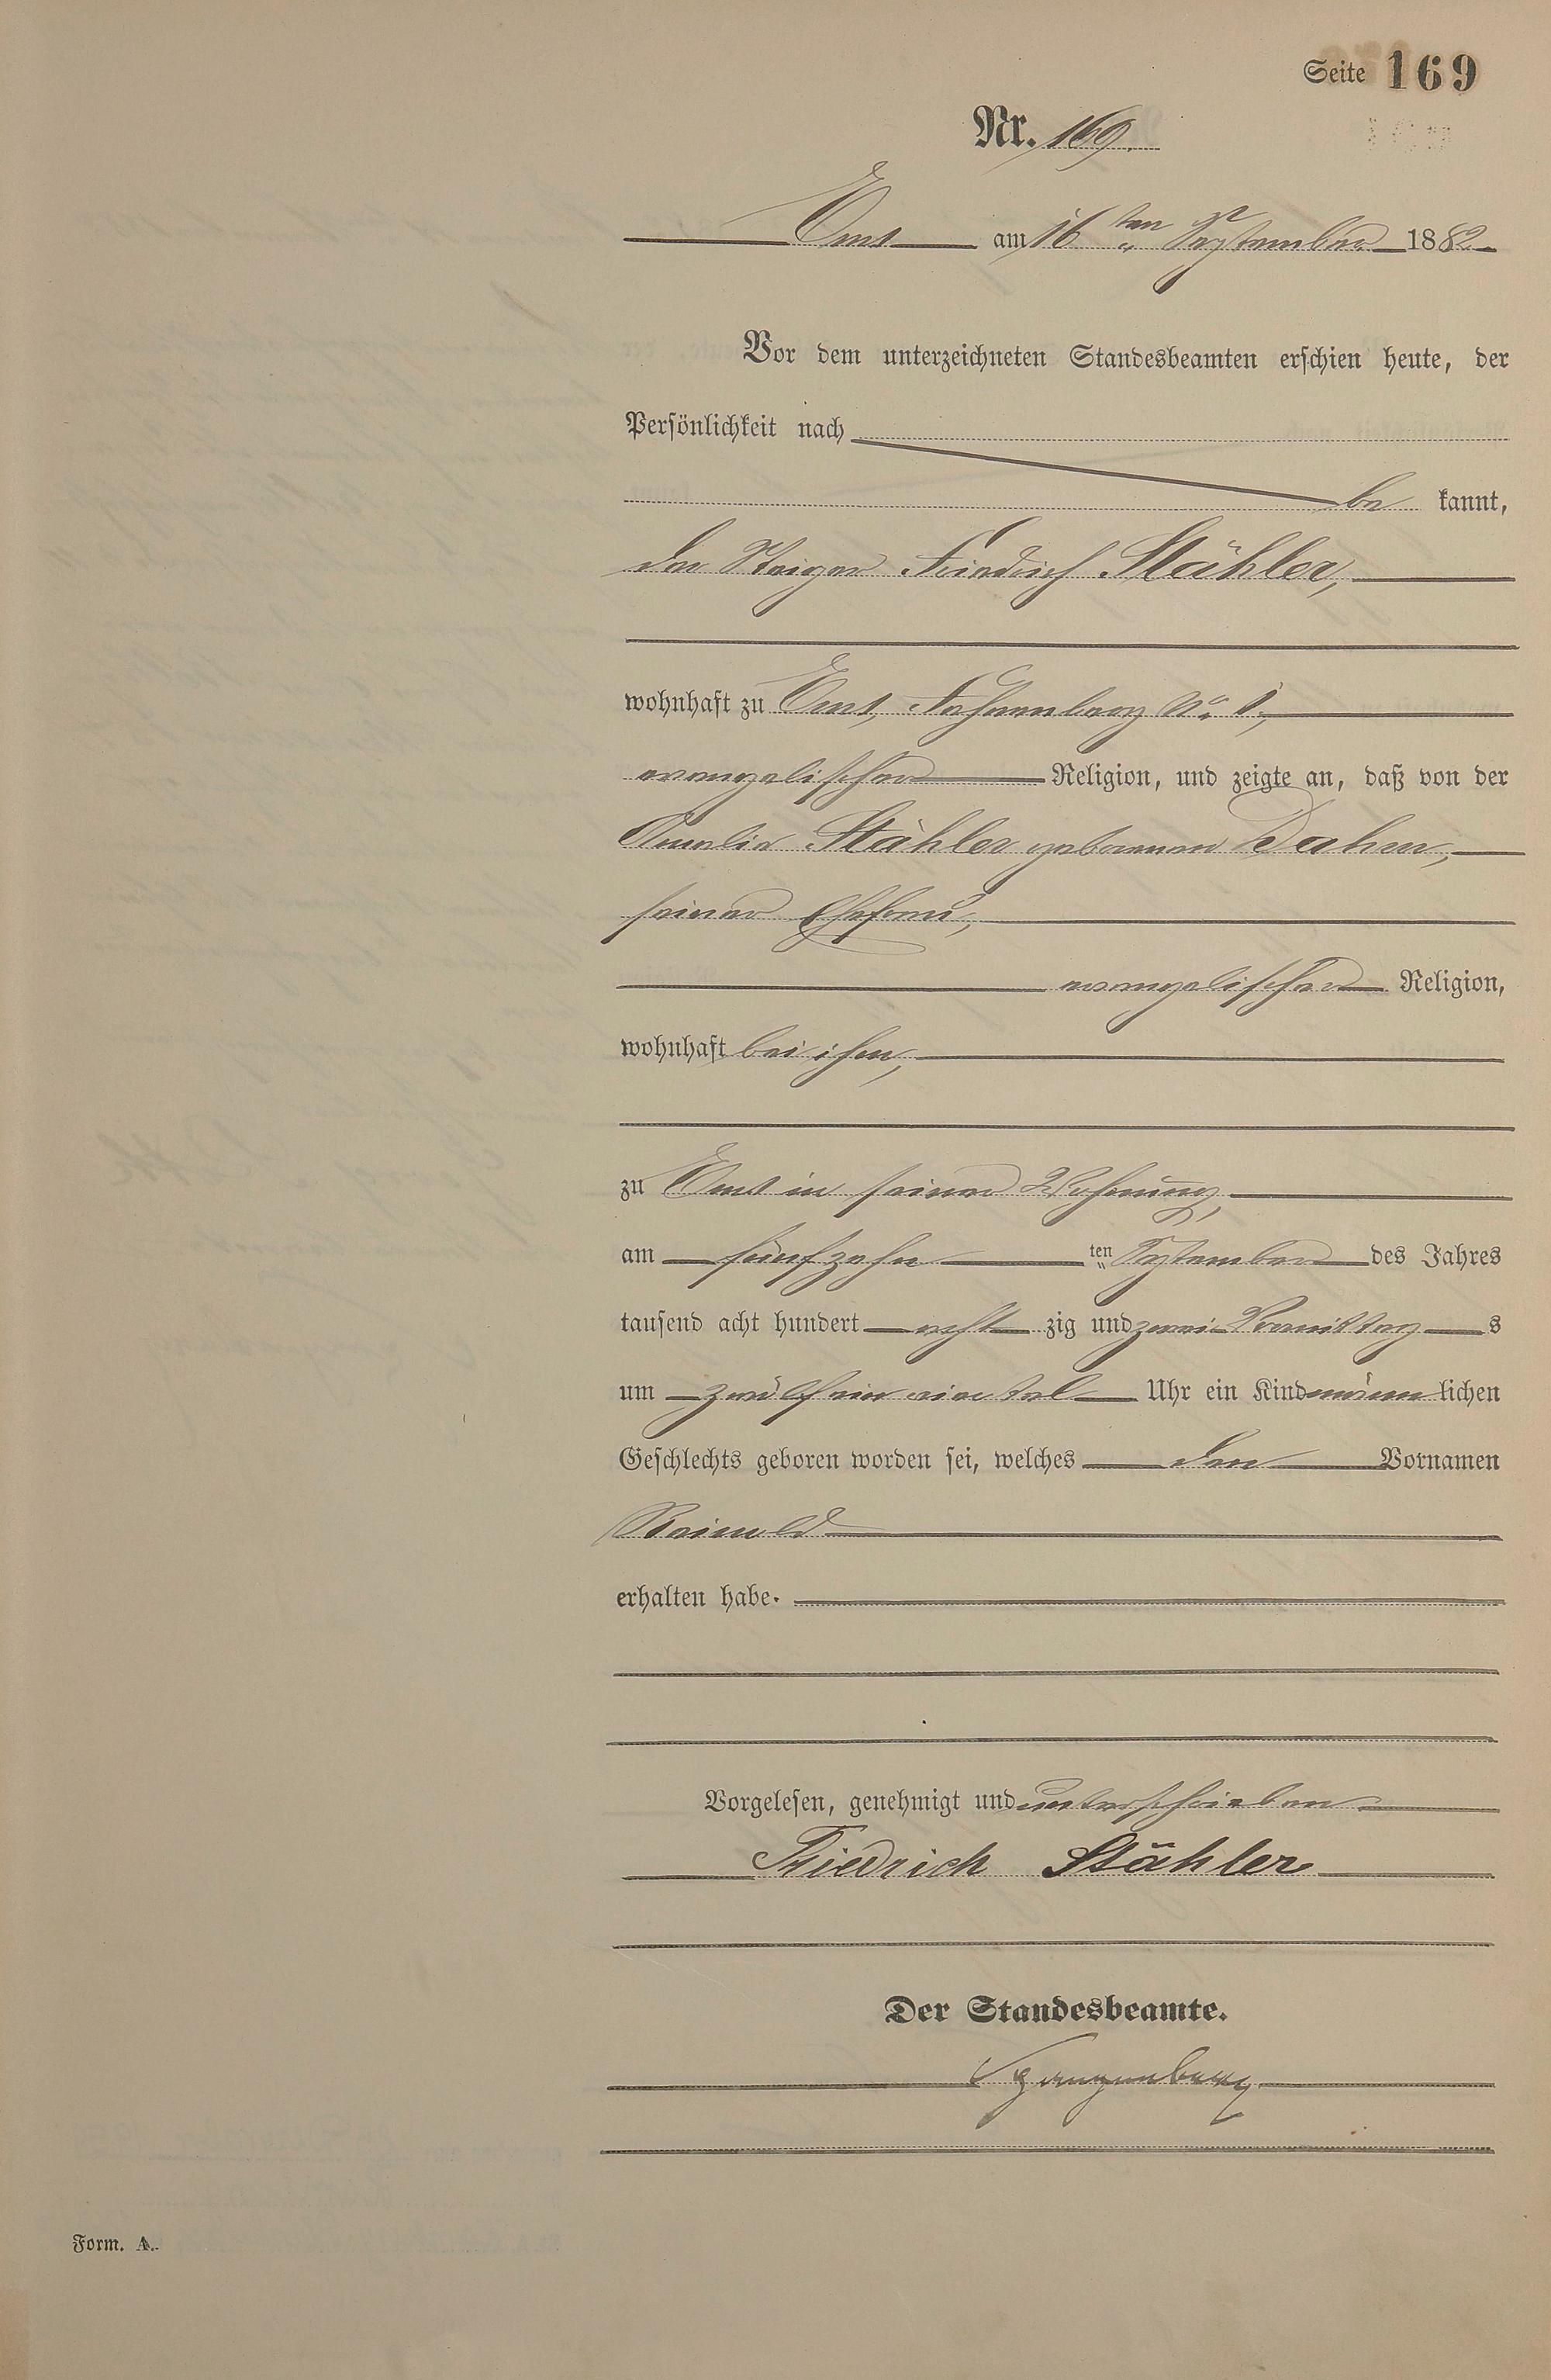 Seite 169
Nr. 169.
Ems am 16 ten September 1882
Vor dem unterzeichneten Standesbeamten erschien heute, der
Persönlichkeit nach
be kannt,
der Steiger Friedrich Stähler,
wohnhaft zu Ems, Fahnenberg No. 1,
evangelischer Religion, und zeigte an, daß von der
Amalia Stähler geborenen Dahm,
seiner Ehefrau,
evangelischer Religion,
wohnhaft bei ihm,
zu Ems in seiner Wohnung,
am fünfzehn ten September des Jahres
tausend acht hundert acht zig und zwei Vormittag s
um zwölfeinviertel Uhr ein Kind männ lichen
Geschlechts geboren worden sei, welches den Vornamen
Reinold
erhalten habe.
Vorgelesen, genehmigt und unterschrieben
Friedrich Stähler
Der Standesbeamte.
Spangenberg
Form. A.